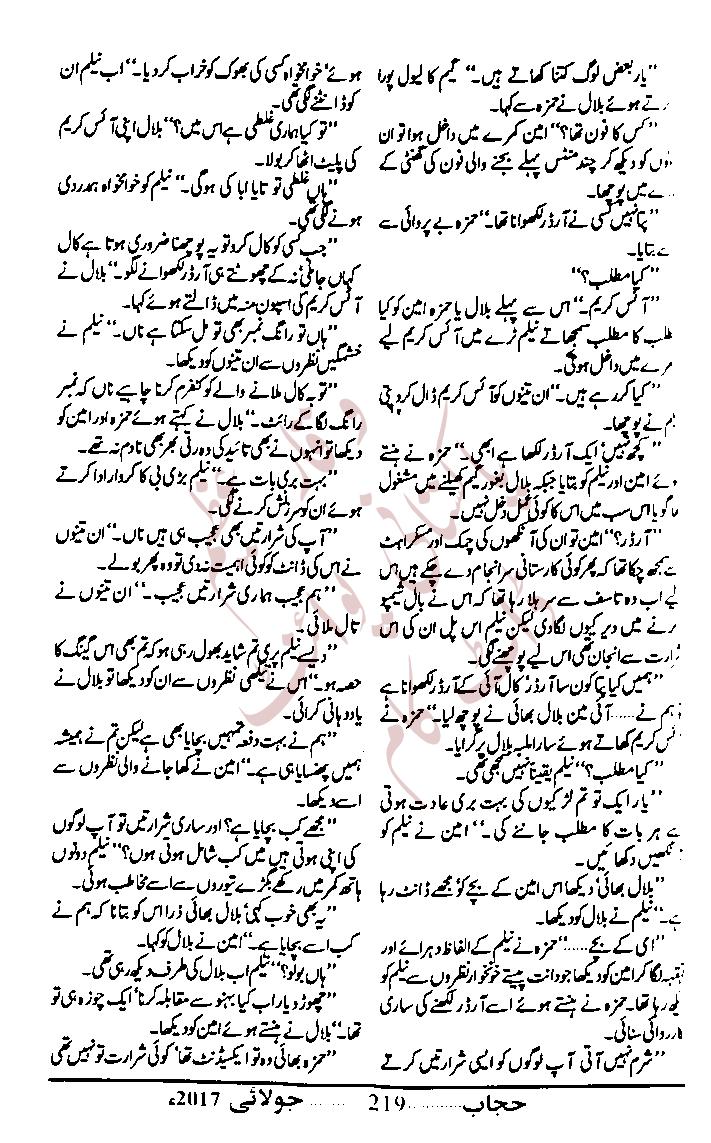 ”یار بعض لوگ کتنا کھاتے ہیں۔“ گیم کا لیول پورا
رتے ہوئے بلال نے حمزہ سے کہا۔
”کس کا فون تھا؟“ امین کمرے میں داخل ہوا تو ان
کو دیکھ کر چند منٹس پہلے بجنے والی فون کی گھنٹی کے
ے میں پوچھا۔
”پتا نہیں کسی نے آرڈر لکھوانا تھا۔“ حمزہ بے پروائی سے
ے بتایا۔
”کیا مطلب؟“
”آئس کریم۔“ اس سے پہلے بلال یا حمزہ امین کو کیا
طلب کا مطلب سمجھاتے نیلم ٹرے میں آئس کریم لیے
مرے میں داخل ہوئی۔
”کیا کر رہے ہیں۔“ ان تینوں کو آئس کریم ڈال کر دیتی
لم نے پوچھا۔
”کچھ نہیں ایک آرڈر لکھا ہے ابھی۔“ حمزہ نے ہنستے
ئے امین اور نیلم کو بتایا جبکہ بلال بغور گیم کھیلنے میں مشغول
گویا اس سب میں اس کا کوئی عمل دخل نہیں۔
”آرڈر؟“ امین تو ان کی آنکھوں کی چمک اور مسکراہٹ
سے سمجھ چکا تھا کہ پھر کوئی کارستانی سرانجام دے چکے ہیں اس
لیے اب وہ تاسف سے سر ہلا رہا تھا کہ اس نے بال شیمپو
رنے میں دیر کیوں لگادی لیکن نیلم اس پل ان کی اس
رارت سے انجان تھی اس لیے پوچھنے لگی۔
”ہمیں کیا پتا کون سا آرڈر کال آئی کے آرڈر لکھوانا ہے
ہم نے...... آئی مین بلال بھائی نے پوچھ لیا۔“ حمزہ نے
ئس کریم کھاتے ہوئے سارا ملبہ بلال پر گرایا۔
”کیا مطلب؟“ نیلم یقیناً نہیں سمجھی تھی۔
”یار ایک تو تم لڑکیوں کی بہت بری عادت ہوتی
ہے ہر بات کا مطلب جاننے کی۔“ امین نے نیلم کو
نکھیں دکھائیں۔
”بلال بھائی دیکھا اس امین کے بچے کو مجھے ڈانٹ رہا
ہے۔“ نیلم نے بلال کو دیکھا۔
”ای کے بچے......“ حمزہ نے نیلم کے الفاظ دہرائے اور
قہقہہ لگا کر امین کو دیکھا جو دانت پیستے خونخوار نظروں سے نیلم کو
یکھ رہا تھا۔ حمزہ نے ہنستے ہوئے اسے آرڈر لکھنے کی ساری
ارروائی سنائی۔
”شرم نہیں آتی آپ لوگوں کو ایسی شرارتیں کرتے
ہوئے خوامخواہ کسی کی بھوک کو خراب کر دیا۔“ اب نیلم ان
کو ڈانٹنے لگی تھی۔
”تو کیا ہماری غلطی ہے اس میں؟“ بلال اپنی آئس کریم
کی پلیٹ اٹھا کر بولا۔
”ہاں غلطی تو تایا ابا کی ہوگی۔“ نیلم کو خوامخواہ ہمدردی
ہونے لگی تھی۔
”جب کسی کو کال کرو تو یہ پوچھنا ضروری ہوتا ہے کال
کہاں جاملی نہ کے چھوٹتے ہی آرڈر لکھوانے لگو۔“ بلال نے
آئس کریم کی اسپون منہ میں ڈالتے ہوئے کہا۔
”ہاں تو رانگ نمبر بھی تو مل سکتا ہے ناں۔“ نیلم نے
خشمگیں نظروں سے ان تینوں کو دیکھا۔
”تو یہ کال ملانے والے کو کنفرم کرنا چاہیے ناں کہ نمبر
رانگ لگا کے رائٹ۔“ بلال نے کہتے ہوئے حمزہ اور امین کو
دیکھا تو انہوں نے بھی تائید کی وہ رتی بھر بھی نادم نہ تھے۔
”بہت بری بات ہے۔“ نیلم بڑی بی کا کردار ادا کرتے
ہوئے ان کو سرزنش کرنے لگی۔
”آپ کی شرارتیں بھی عجیب ہی ہیں ناں۔“ ان تینوں
نے اس کی ڈانٹ کو کوئی اہمیت نہ دی تو وہ پھر بولے۔
”ہم عجیب ہماری شرارتیں عجیب۔“ ان تینوں نے
تال ملائی۔
”ویسے نیلم پری تم شاید بھول رہی ہو کہ تم بھی اس گینگ کا
حصہ ہو۔“ اس نے تیکھی نظروں سے ان کو دیکھا تو بلال نے
یاد دہانی کرائی۔
”ہم نے بہت دفعہ تمہیں بچایا بھی ہے لیکن تم نے ہمیشہ
ہمیں پھنسایا ہی ہے۔“ امین نے کھا جانے والی نظروں سے
اسے دیکھا۔
”مجھے کب بچایا ہے؟ اور ساری شرارتیں تو آپ لوگوں
کی اپنی ہوتی ہیں میں کب شامل ہوتی ہوں؟“ نیلم دونوں
ہاتھ کمر میں رکھے بگڑے تیوروں سے اسے مخاطب ہوئی۔
”یہ بھی خوب کہی بلال بھائی ذرا اس کو بتانا کہ ہم نے
کب اسے بچایا ہے۔“ امین نے بلال کو کہا۔
”ہاں بولو؟“ نیلم اب بلال کی طرف دیکھ رہی تھی۔
”چھوڑ دیا رب کیا بہنو سے مقابلہ کرنا ایک چوزہ ہی تو
تھا۔“ بلال نے ہنستے ہوئے امین کو دیکھا۔
”حمزہ بھائی وہ تو ایکسیڈنٹ تھا کوئی شرارت تو نہیں تھی
حجاب.......... 219 ...... جولائی 2017ء